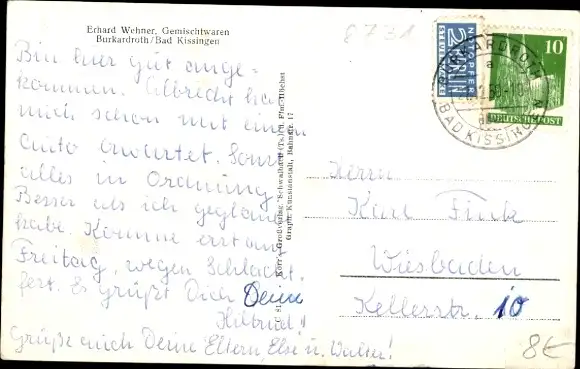 Erhard Wehner, Gemischtwaren
Burkardroth/Bad Kissingen
8731
Bin hier gut ange-
kommen. Albrecht hat
mich schon mit einem
Auto erwartet. Sonst
alles in Ordnung
Besser als ich geglaubt
habe. Komme erst am
Freitag, wegen Schlacht-
fest. Es grüßt Dich Deine
Hiltrud!
Grüße auch Deine Eltern, Else u. Walter!
Graph. Kunstanstalt, Bahnstr. 17
NOTOPFER
2 BERLIN
STEUERMARKE
10
DEUTSCHE POST
BURKARDROTH
a
BAD KISSINGEN
Herrn
Karl Fink
Wiesbaden
Kellerstr. 10
8€